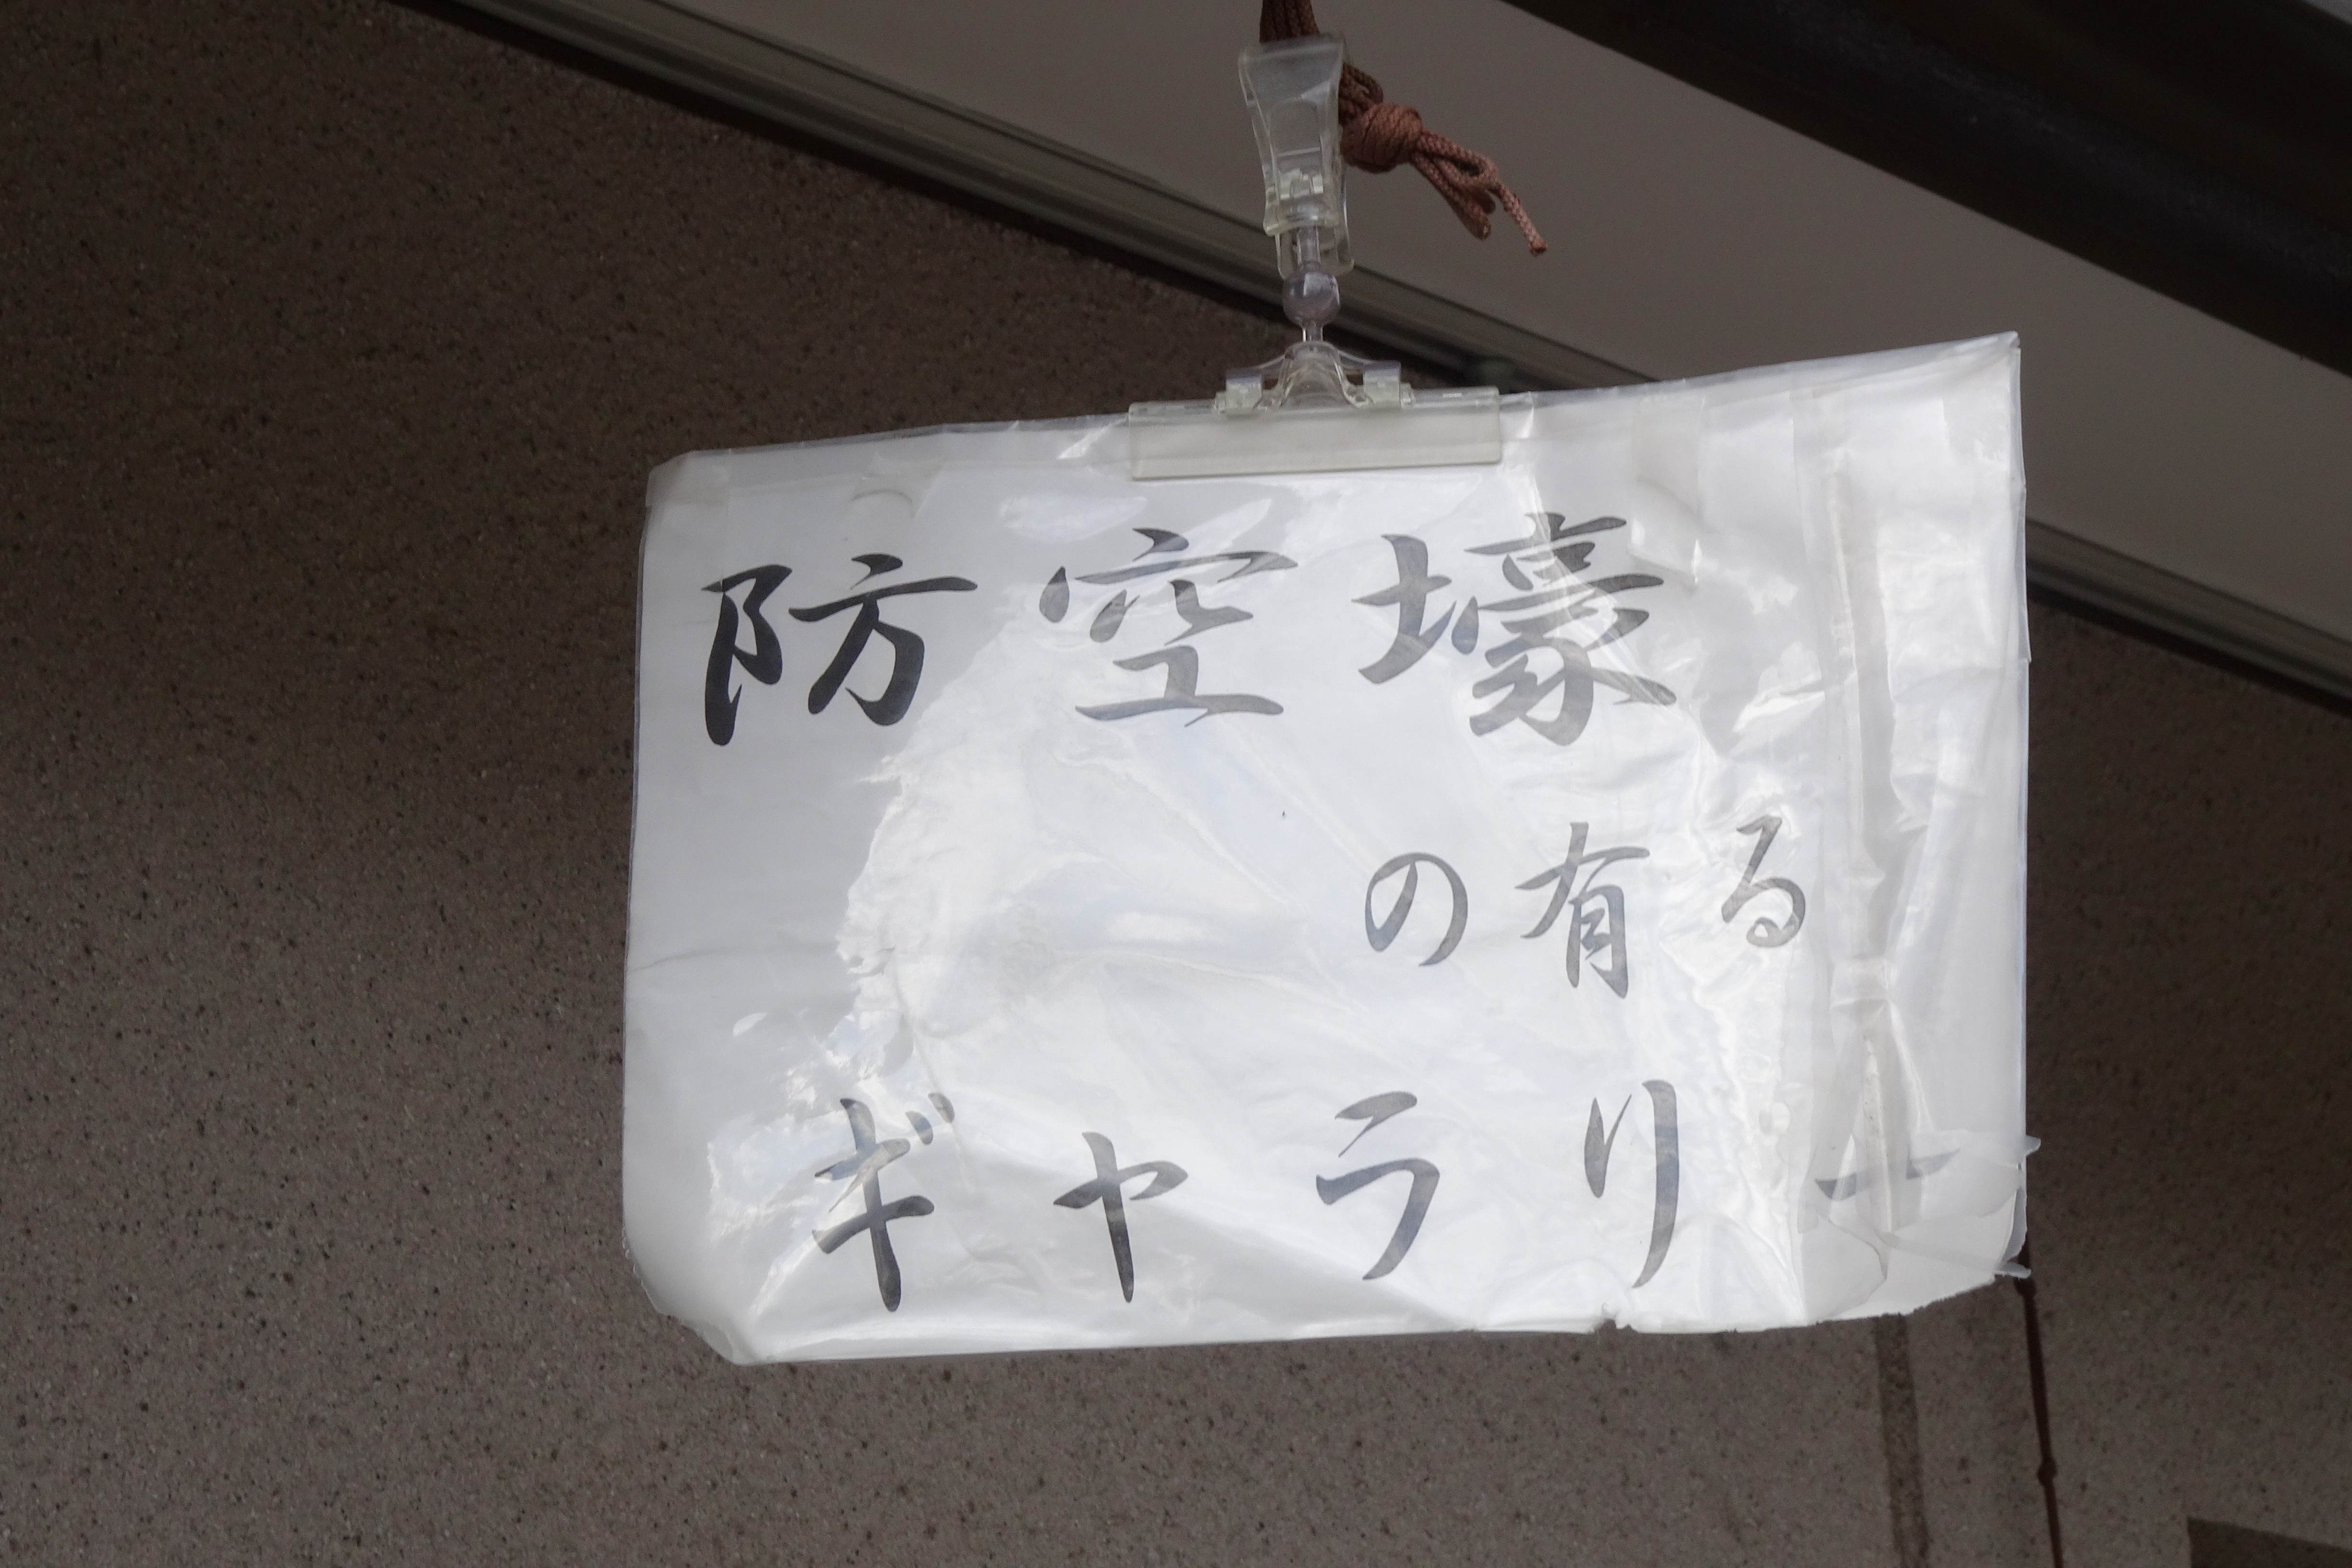 防空壕
の有る
ギャラリー